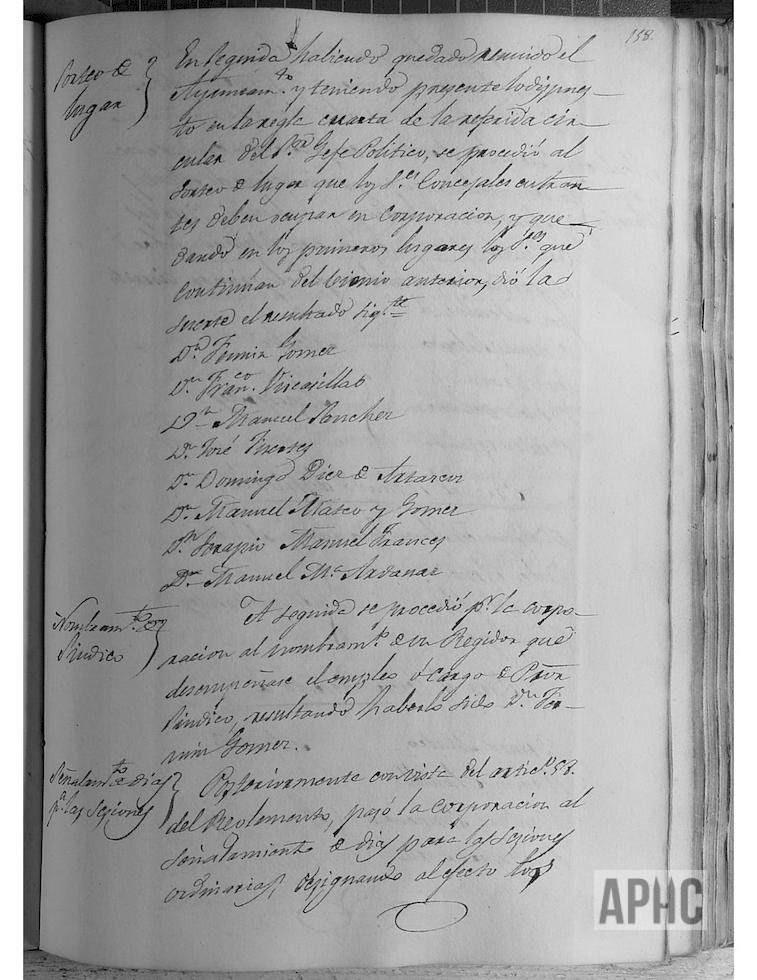 158.
Sorteo de
lugar
En seguida habiendo quedado reunido el
Ayuntam.to y teniendo presente lo dispues-
to en la regla cuarta de la referida cir-
cular del S.or Gefe Politico, se procedió al
sorteo de lugar que los S.es Concejales entran-
tes deben ocupar en Corporacion, y que-
dando en los primeros lugares los S.res que
continúan del bienio anterior, dió la
suerte el resultado sig.te
D.n Fermin Gomez
D.n Fran.co Vicasillas
D.n Manuel Sanchez
D.n José Fuertes
D.n Domingo Diez de
D.n Manuel Mateo y Gomez
D.n Serapio Manuel Frances
D.n Manuel M.a Ardanaz
Nombram.to de
Sindico
A seguida se procedió p.r la corpo-
racion al nombram.to de un Regidor que
desempeñase el empleo ó cargo de Pror
Sindico, resultando haberlo sido D.n Fer-
min Gomez.
Señalam.to de dias
p.a las sesiones
Posteriormente con vista del artic.o 58.
del Reglamento, pasó la corporacion al
señalamiento de dias para las sesiones
ordinarias, designando al efecto los
APHC